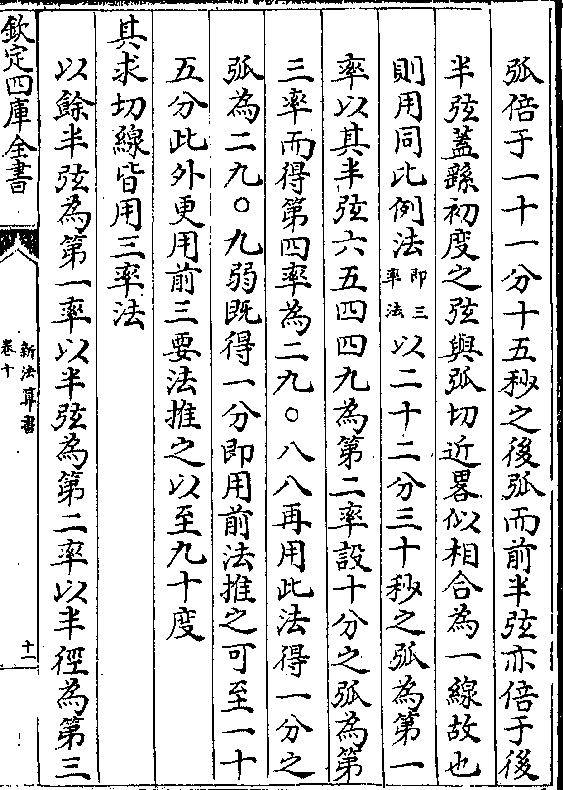 弧倍于一十一分十五秒之後弧而前半弦亦倍于後
半弦蓋繇初度之弦與弧切近畧似相合為一線故也
則用同比例法即三率法以二十二分三十秒之弧為第一
率以其半弦六五四四九為第二率設十分之弧為第
三率而得第四率為二九〇八八再用此法得一分之
弧為二九〇九弱既得一分即用前法推之可至一十
五分此外更用前三要法推之以至九十度
其求切線皆用三率法
以餘半弦為第一率以半弦為第二率以半徑為第三
欽定四庫全書
新法算書
卷十
十一